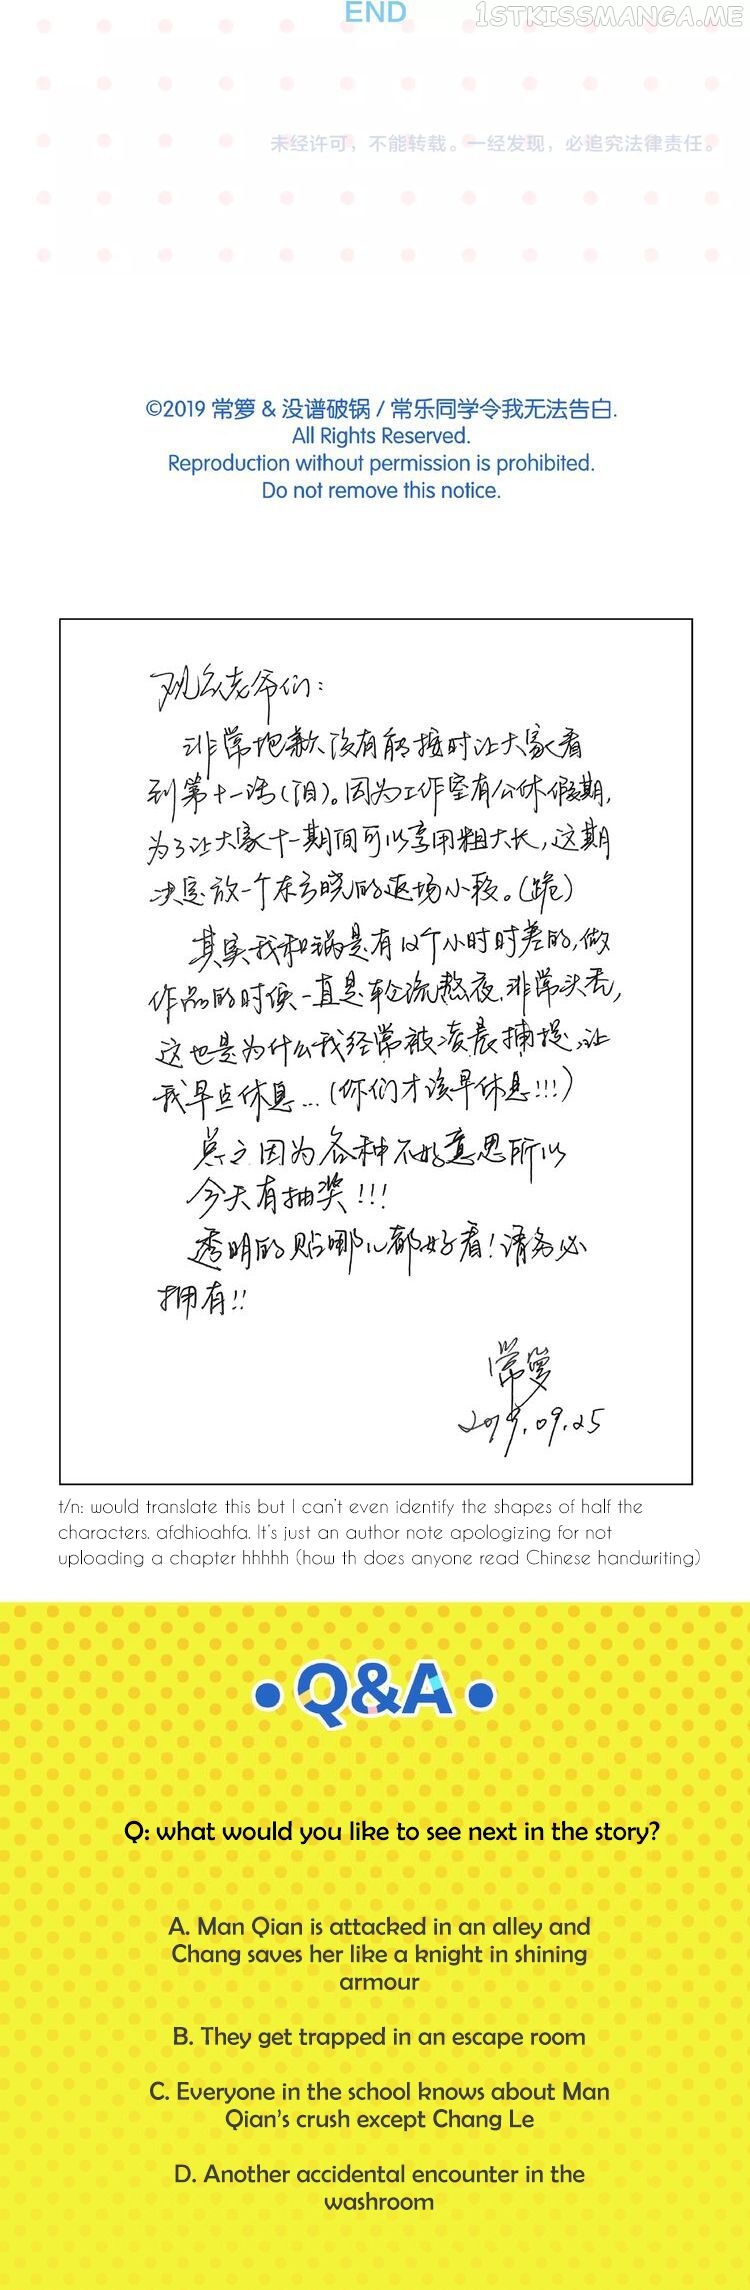 END
1STKISSMANGA.ME
未经许可，不能转载。一经发现，必追究法律责任。
©2019 常箩 & 没谱破锅 / 常乐同学令我无法告白.
All Rights Reserved.
Reproduction without permission is prohibited.
Do not remove this notice.
观众老爷们：
非常抱歉没有能按时让大家看
到第十一话(泪)。因为工作室有公休假期,
为了让大家十一期间可以享用粗大长,这期
决定放一个东方晓的返场小段。(跪)
其实我和锅是有12个小时时差的,做
作品的时候一直是轮流熬夜,非常头秃,
这也是为什么我经常被凌晨捕捉,让
我早点休息...(你们才该早休息!!!)
总之因为各种不好意思所以
今天有抽奖!!!
透明的贴哪儿都好看!请务必
拥有!!
常箩
2019.09.25
t/n: would translate this but I can't even identify the shapes of half the
characters. afdhioahfa. It's just an author note apologizing for not
uploading a chapter hhhhh (how th does anyone read Chinese handwriting)
• Q&A •
Q: what would you like to see next in the story?
A. Man Qian is attacked in an alley and
Chang saves her like a knight in shining
armour
B. They get trapped in an escape room
C. Everyone in the school knows about Man
Qian's crush except Chang Le
D. Another accidental encounter in the
washroom